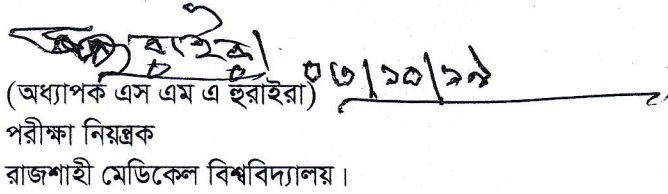 ০৩/১০/১৯
(অধ্যাপক এস এম এ হুরাইরা)
পরীক্ষা নিয়ন্ত্রক
রাজশাহী মেডিকেল বিশ্ববিদ্যালয়।